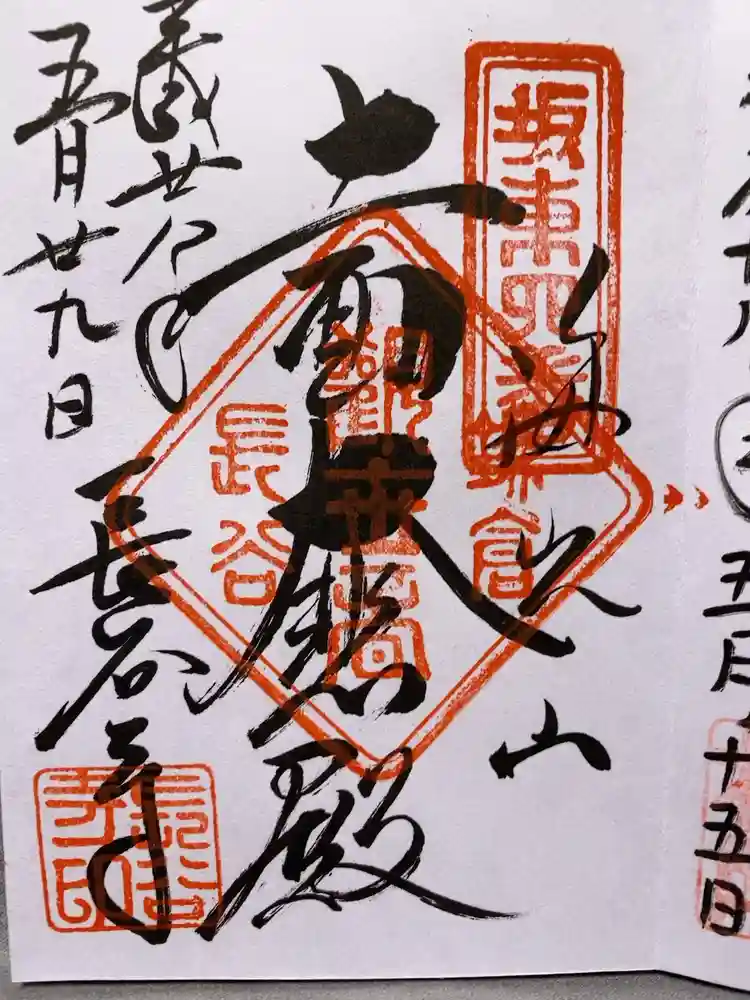 五月十五日
坂東四番
海光山
鎌倉
十一面大悲殿
観世音
長谷
廿八年
五月廿九日
長谷寺
長谷寺印